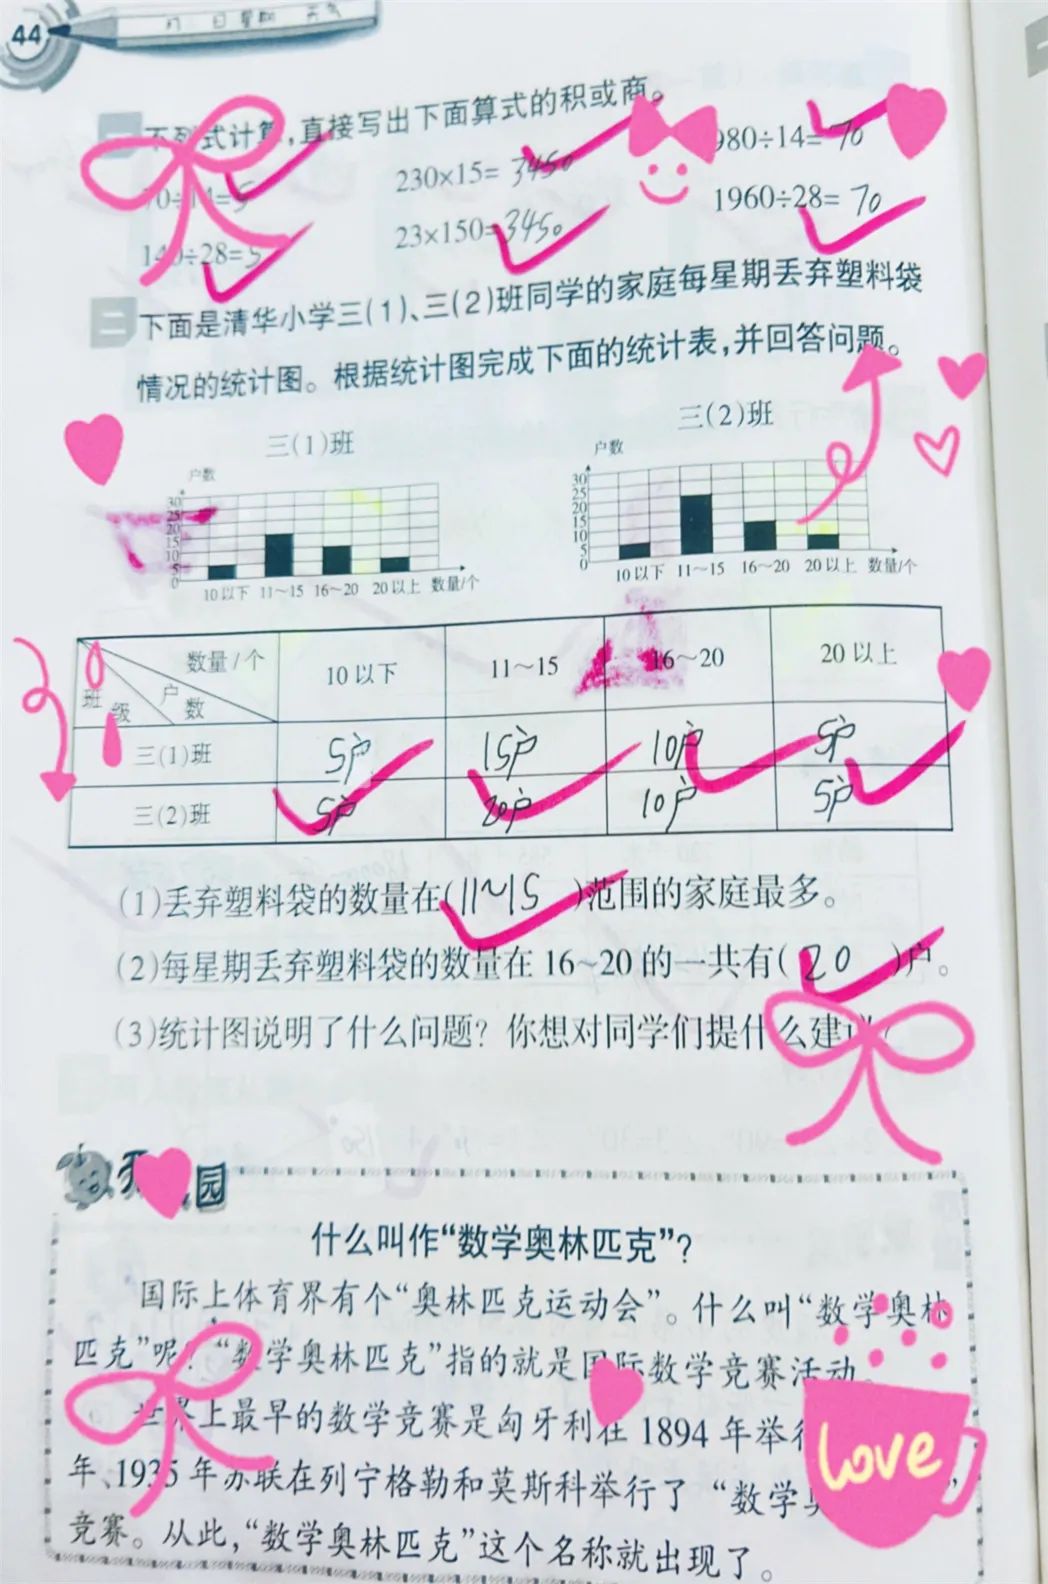 44
月 日 星期 天气
一 不列式计算,直接写出下面算式的积或商。
70÷14=5 230×15=3450 980÷14=70
140÷28=5 23×150=3450 1960÷28=70
二 下面是清华小学三(1)、三(2)班同学的家庭每星期丢弃塑料袋
情况的统计图。根据统计图完成下面的统计表,并回答问题。
三(1)班
户数
30
25
20
15
10
5
0
10以下 11~15 16~20 20以上 数量/个
三(2)班
户数
30
25
20
15
10
5
0
10以下 11~15 16~20 20以上 数量/个
数量/个 户数 班级 10以下 11~15 16~20 20以上
三(1)班 5户 15户 10户 5户
三(2)班 5户 20户 10户 5户
(1)丢弃塑料袋的数量在(11~15)范围的家庭最多。
(2)每星期丢弃塑料袋的数量在16~20的一共有(20)户。
(3)统计图说明了什么问题?你想对同学们提什么建议?
园
什么叫作“数学奥林匹克”?
国际上体育界有个“奥林匹克运动会”。什么叫“数学奥林
匹克”呢?“数学奥林匹克”指的就是国际数学竞赛活动。
世界上最早的数学竞赛是匈牙利在1894年举行
年、1935年苏联在列宁格勒和莫斯科举行了“数学奥
竞赛。从此,“数学奥林匹克”这个名称就出现了。
Love